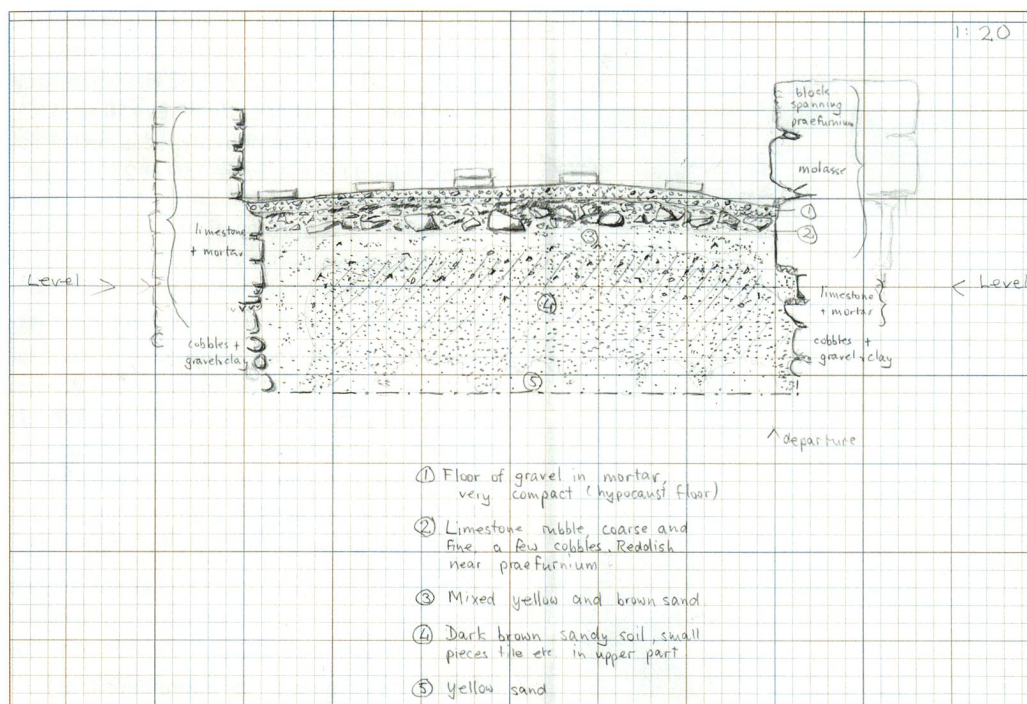 1:20
block
spanning
praefurnium
molasse
①
②
③
limestone
+ mortar
Level >
< Level
④
limestone
+ mortar
cobbles +
gravel + clay
cobbles +
gravel + clay
⑤
^ departure
① Floor of gravel in mortar,
very compact (hypocaust floor)
② Limestone rubble, coarse and
fine, a few cobbles. Reddish
near praefurnium
③ Mixed yellow and brown sand
④ Dark brown sandy soil, small
pieces tile etc. in upper part
⑤ Yellow sand